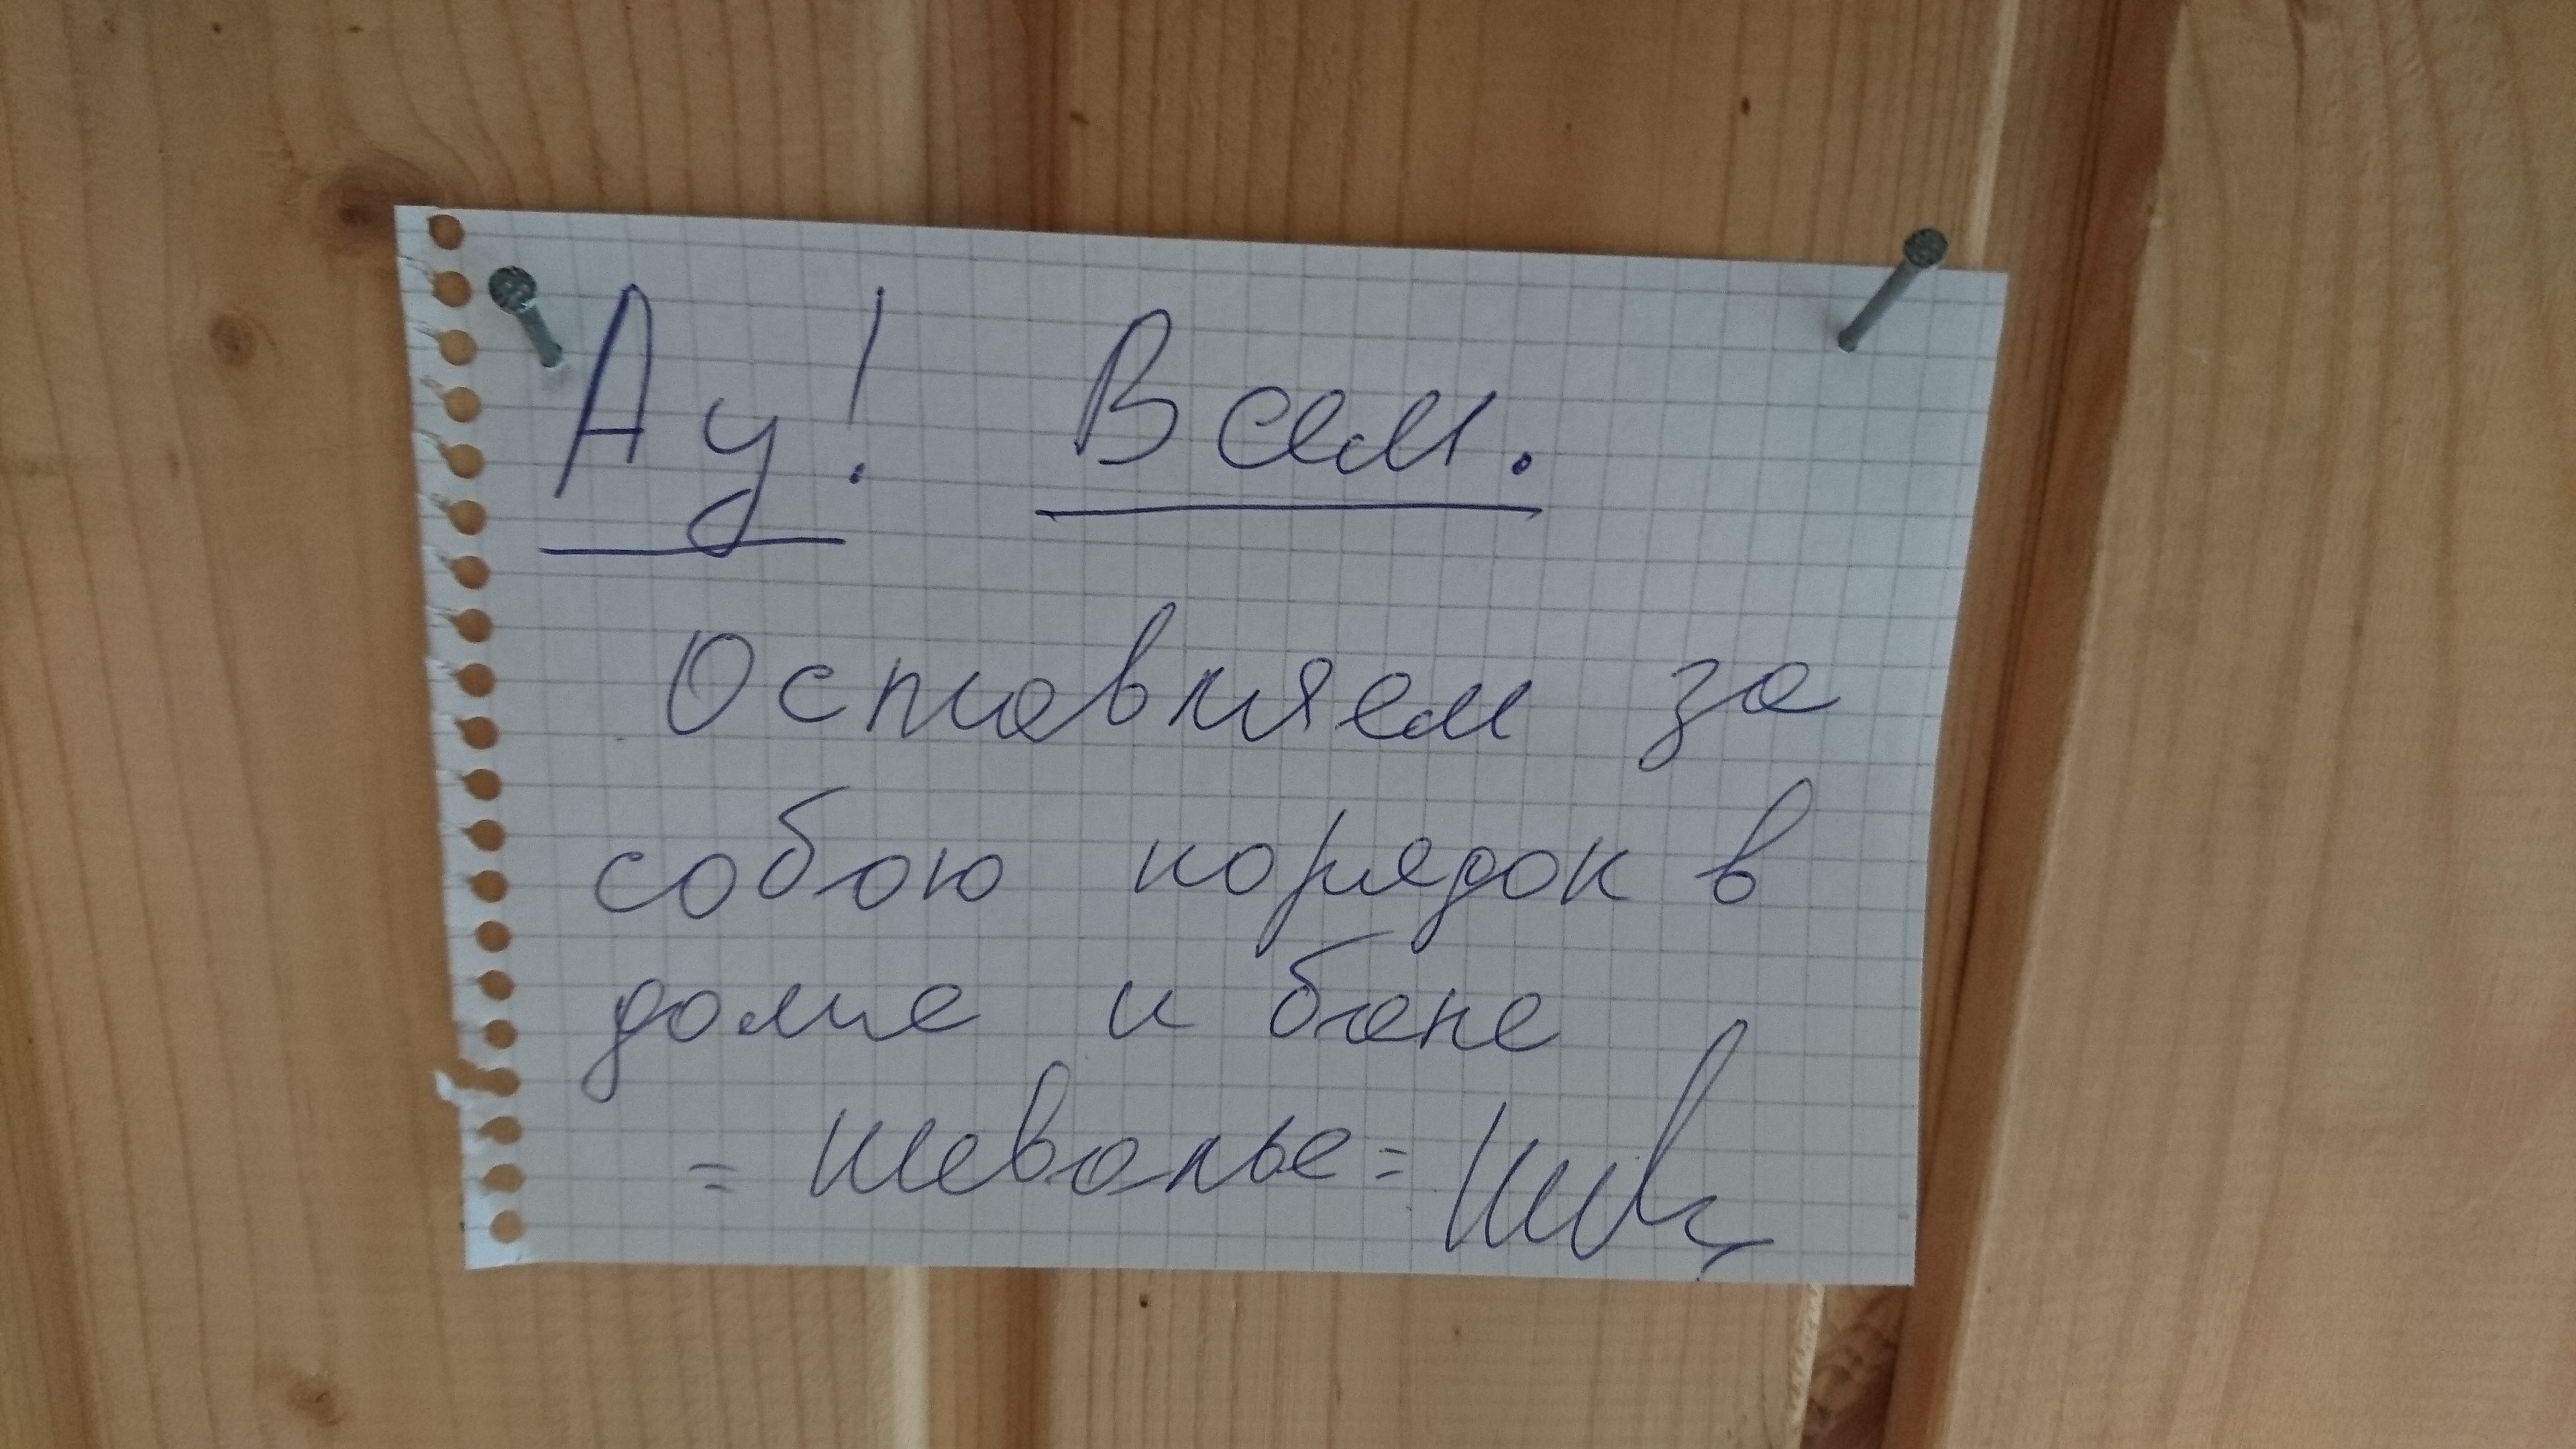 Ау! Всем.
Оставляем за
собою порядок в
доме и бане
= Шевалье =